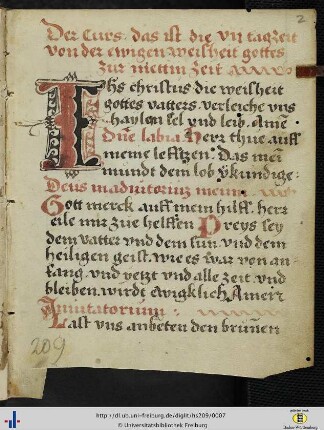 2
Der Curs: das ist die vii tagzeit
von der ewigen weisheit gottes
zur mettin zeit
Ihs christus die weisheit
gottes vatters. verleiche vns
haylen sel vnd leib. Amē
Dn̄e labia. Herr thue auff
meine lefftzen: Das mein
mundt dem lob verkündige:
Deus in adiutorium meum
Gott merck auff mein hilff. herr
eile mir zue helffen Preys sey
dem vatter vnd dem sun. vnd dem
heiligen geist. wie es war von an-
fang. vnd yetzt vnd alle zeit. vnd
bleiben. wirdt ewigklich Amen
Inuitatorium:
Last vns anbeten den brunnen
209
http://dl.ub.uni-freiburg.de/diglit/hs209/0007
© Universitätsbibliothek Freiburg